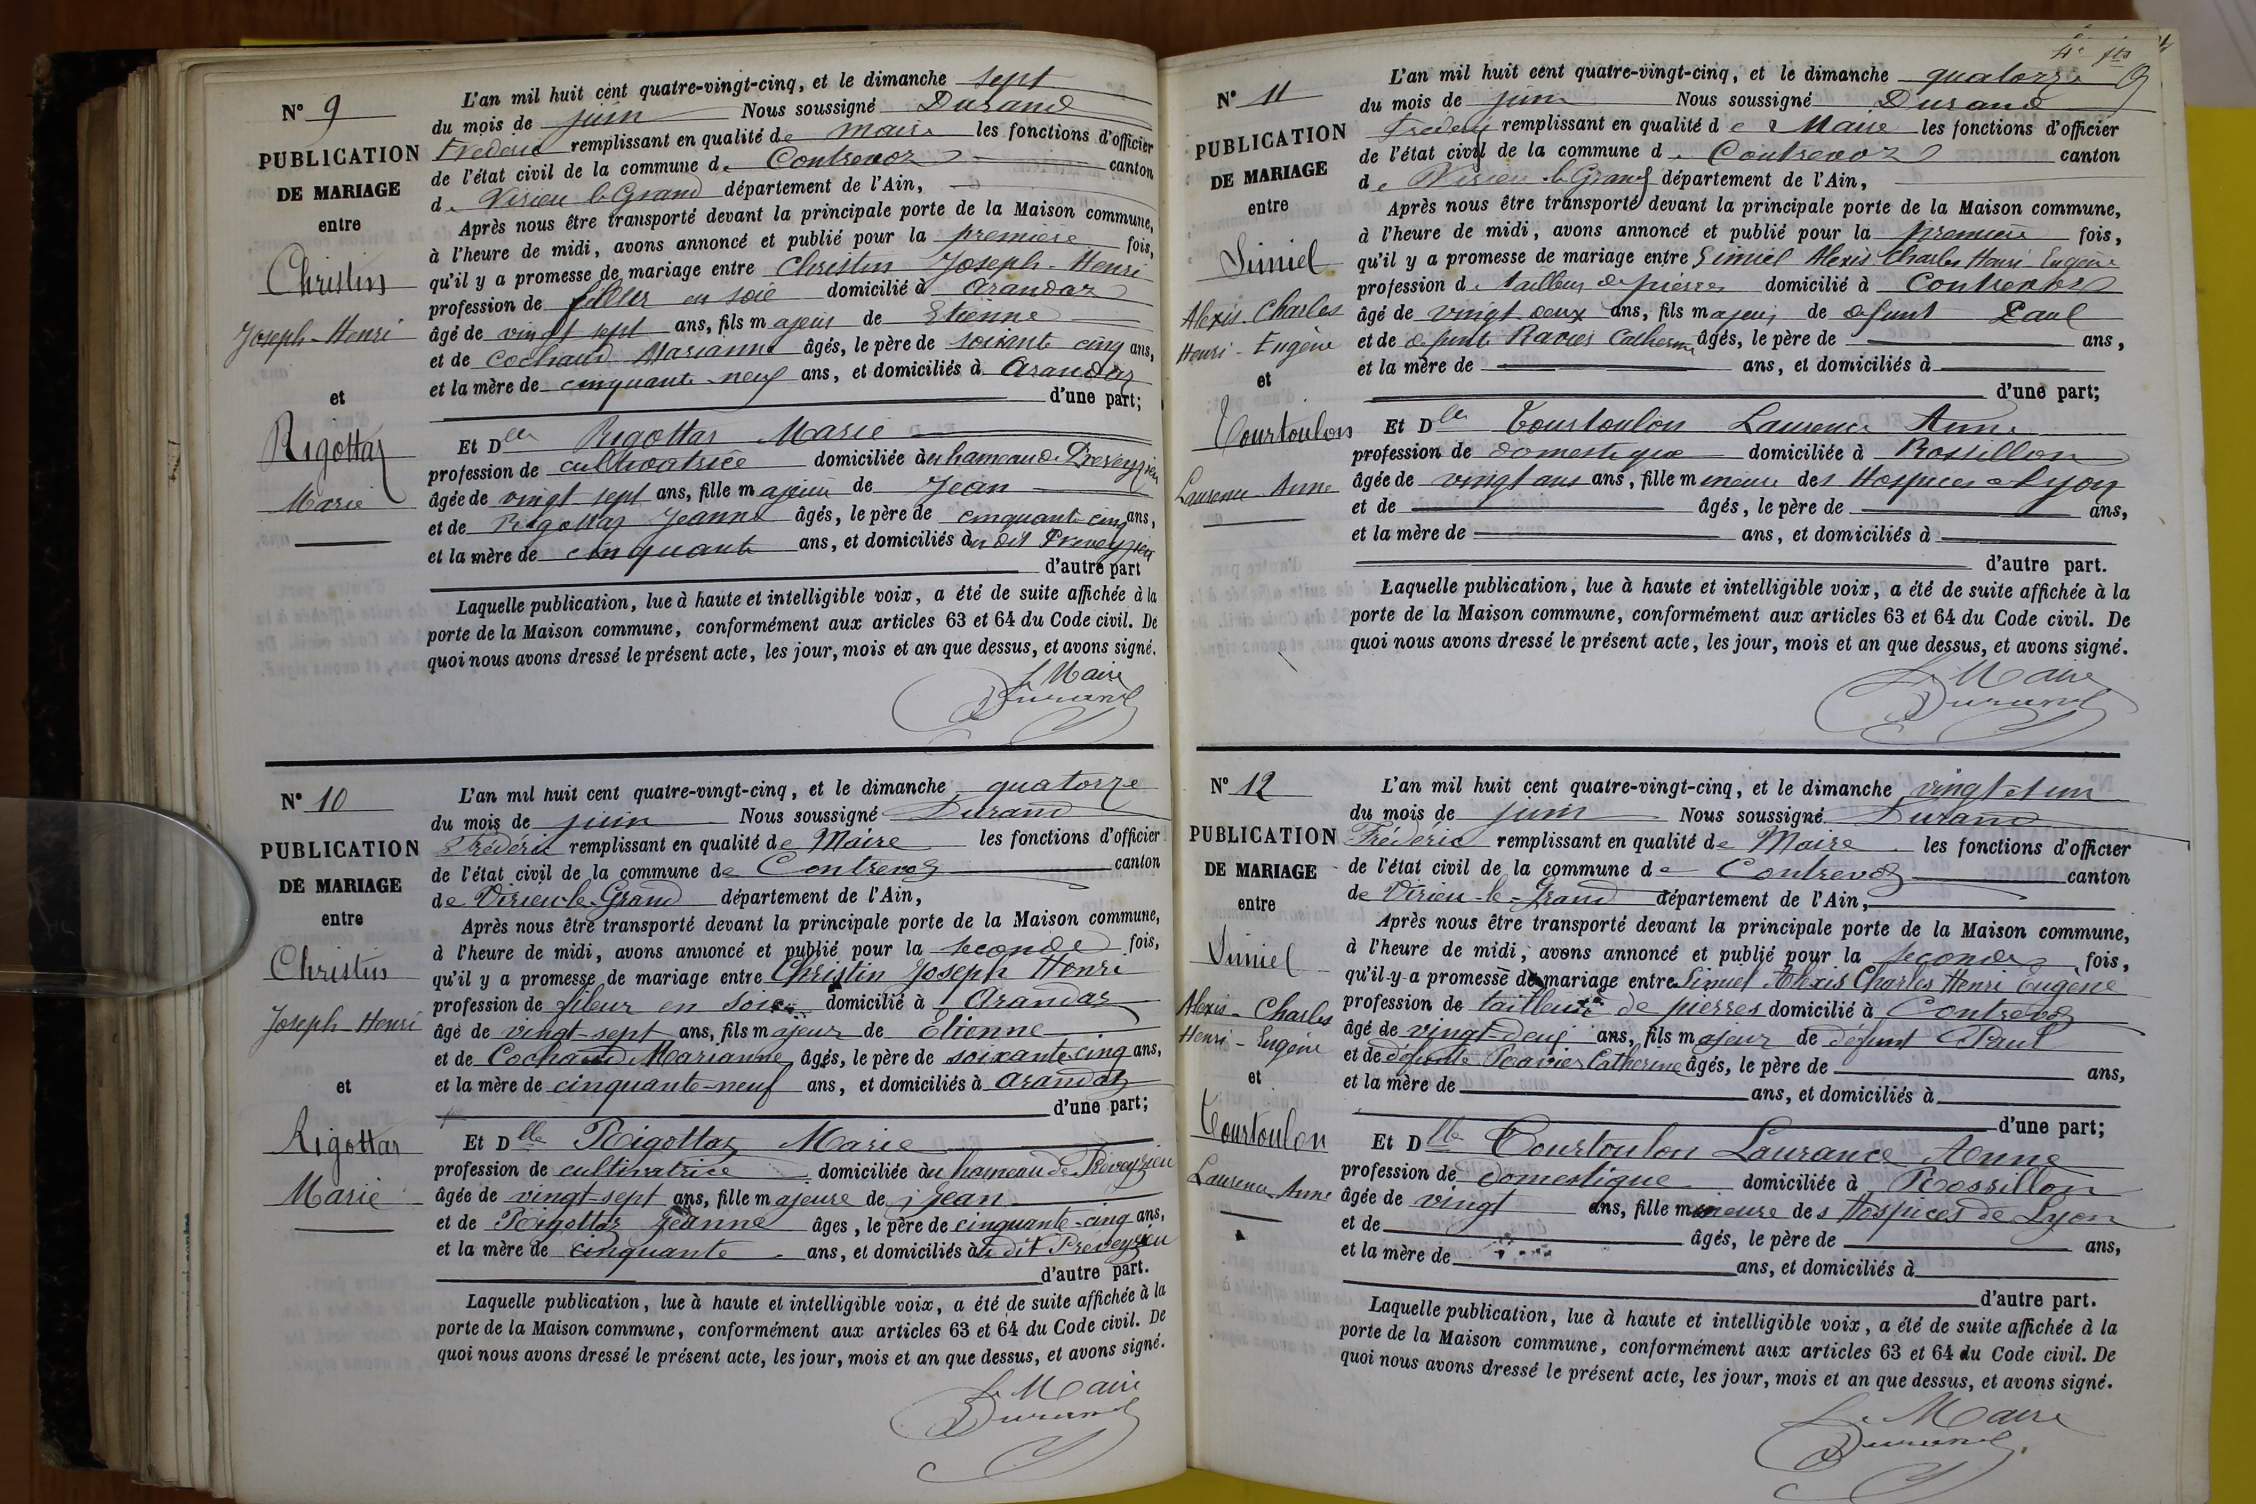 N° 9
PUBLICATION
DE MARIAGE
entre
Christin
Joseph-Henri
et
Rigottaz
Marie
L'an mil huit cent quatre-vingt-cinq, et le dimanche sept
du mois de juin Nous soussigné Durand
Frédéric remplissant en qualité de maire les fonctions d'officier
de l'état civil de la commune de Contrevoz canton
de Virieu le Grand département de l'Ain,
Après nous être transporté devant la principale porte de la Maison commune,
à l'heure de midi, avons annoncé et publié pour la première fois,
qu'il y a promesse de mariage entre Christin Joseph-Henri
profession de en soie domicilié à Arandaz
âgé de vingt sept ans, fils majeur de Etienne
et de Cochaud Marianne âgés, le père de soixante cinq ans,
et la mère de cinquante-neuf ans, et domiciliés à Arandaz
d'une part;
Et Dlle Rigottaz Marie
profession de cultivatrice domiciliée au hameau de Preveyzieu
âgée de vingt sept ans, fille majeure de Jean
et de Rigottaz Jeanne âgés, le père de cinquante cinq ans,
et la mère de cinquante ans, et domiciliés au dit Preveyzieu
d'autre part
Laquelle publication, lue à haute et intelligible voix, a été de suite affichée à la
porte de la Maison commune, conformément aux articles 63 et 64 du Code civil. De
quoi nous avons dressé le présent acte, les jour, mois et an que dessus, et avons signé.
Le Maire
Durand
N° 10
PUBLICATION
DE MARIAGE
entre
Christin
Joseph-Henri
et
Rigottaz
Marie
L'an mil huit cent quatre-vingt-cinq, et le dimanche quatorze
du mois de juin Nous soussigné Durand
Frédéric remplissant en qualité de Maire les fonctions d'officier
de l'état civil de la commune de Contrevoz canton
de Virieu-le-Grand département de l'Ain,
Après nous être transporté devant la principale porte de la Maison commune,
à l'heure de midi, avons annoncé et publié pour la seconde fois,
qu'il y a promesse de mariage entre Christin Joseph Henri
profession de fileur en soie domicilié à Arandaz
âgé de vingt-sept ans, fils majeur de Étienne
et de Cochaud Marianne âgés, le père de soixante-cinq ans,
et la mère de cinquante-neuf ans, et domiciliés à Arandaz
d'une part;
Et Dlle Rigottaz Marie
profession de cultivatrice domiciliée au hameau de Preveyzieu
âgée de vingt-sept ans, fille majeure de Jean
et de Rigottaz Jeanne âgés, le père de cinquante-cinq ans,
et la mère de cinquante ans, et domiciliés au dit Préveyzieu
d'autre part.
Laquelle publication, lue à haute et intelligible voix, a été de suite affichée à la
porte de la Maison commune, conformément aux articles 63 et 64 du Code civil. De
quoi nous avons dressé le présent acte, les jour, mois et an que dessus, et avons signé.
Le Maire
Durand
N° 11
PUBLICATION
DE MARIAGE
entre
Simiel
Alexis-Charles
Henri-Eugène
et
Tourtoulon
Laurence Anne
L'an mil huit cent quatre-vingt-cinq, et le dimanche quatorze
du mois de juin Nous soussigné Durand
Frédéric remplissant en qualité de Maire les fonctions d'officier
de l'état civil de la commune de Contrevoz canton
de Virieu le Grand département de l'Ain,
Après nous être transporté devant la principale porte de la Maison commune,
à l'heure de midi, avons annoncé et publié pour la première fois,
qu'il y a promesse de mariage entre Simiel Alexis Charles Henri Eugène
profession de tailleur de pierres domicilié à Contrevoz
âgé de vingt deux ans, fils majeur de défunt Paul
et de défunte Ravier Catherine âgés, le père de ans,
et la mère de ans, et domiciliés à
d'une part;
Et Dlle Tourtoulon Laurence Anne
profession de domestique domiciliée à Rossillon
âgée de vingt ans ans, fille mineure des Hospices de Lyon
et de âgés, le père de ans,
et la mère de ans, et domiciliés à
d'autre part.
Laquelle publication, lue à haute et intelligible voix, a été de suite affichée à la
porte de la Maison commune, conformément aux articles 63 et 64 du Code civil. De
quoi nous avons dressé le présent acte, les jour, mois et an que dessus, et avons signé.
Le Maire
Durand
N° 12
PUBLICATION
DE MARIAGE
entre
Simiel
Alexis-Charles
Henri-Eugène
et
Tourtoulon
Laurence Anne
L'an mil huit cent quatre-vingt-cinq, et le dimanche vingt et un
du mois de juin Nous soussigné Durand
Frédéric remplissant en qualité de Maire les fonctions d'officier
de l'état civil de la commune de Contrevoz canton
de Virieu-le-Grand département de l'Ain,
Après nous être transporté devant la principale porte de la Maison commune,
à l'heure de midi, avons annoncé et publié pour la seconde fois,
qu'il y a promesse de mariage entre Simiel Alexis Charles Henri Eugène
profession de tailleur de pierres domicilié à Contrevoz
âgé de vingt-deux ans, fils majeur de défunt Paul
et de défunte Ravier Catherine âgés, le père de ans,
et la mère de ans, et domiciliés à
d'une part;
Et Dlle Tourtoulon Laurance Anne
profession de domestique domiciliée à Rossillon
âgée de vingt ans, fille mineure des Hospices de Lyon
et de âgés, le père de ans,
et la mère de ans, et domiciliés à
d'autre part.
Laquelle publication, lue à haute et intelligible voix, a été de suite affichée à la
porte de la Maison commune, conformément aux articles 63 et 64 du Code civil. De
quoi nous avons dressé le présent acte, les jour, mois et an que dessus, et avons signé.
Le Maire
Durand